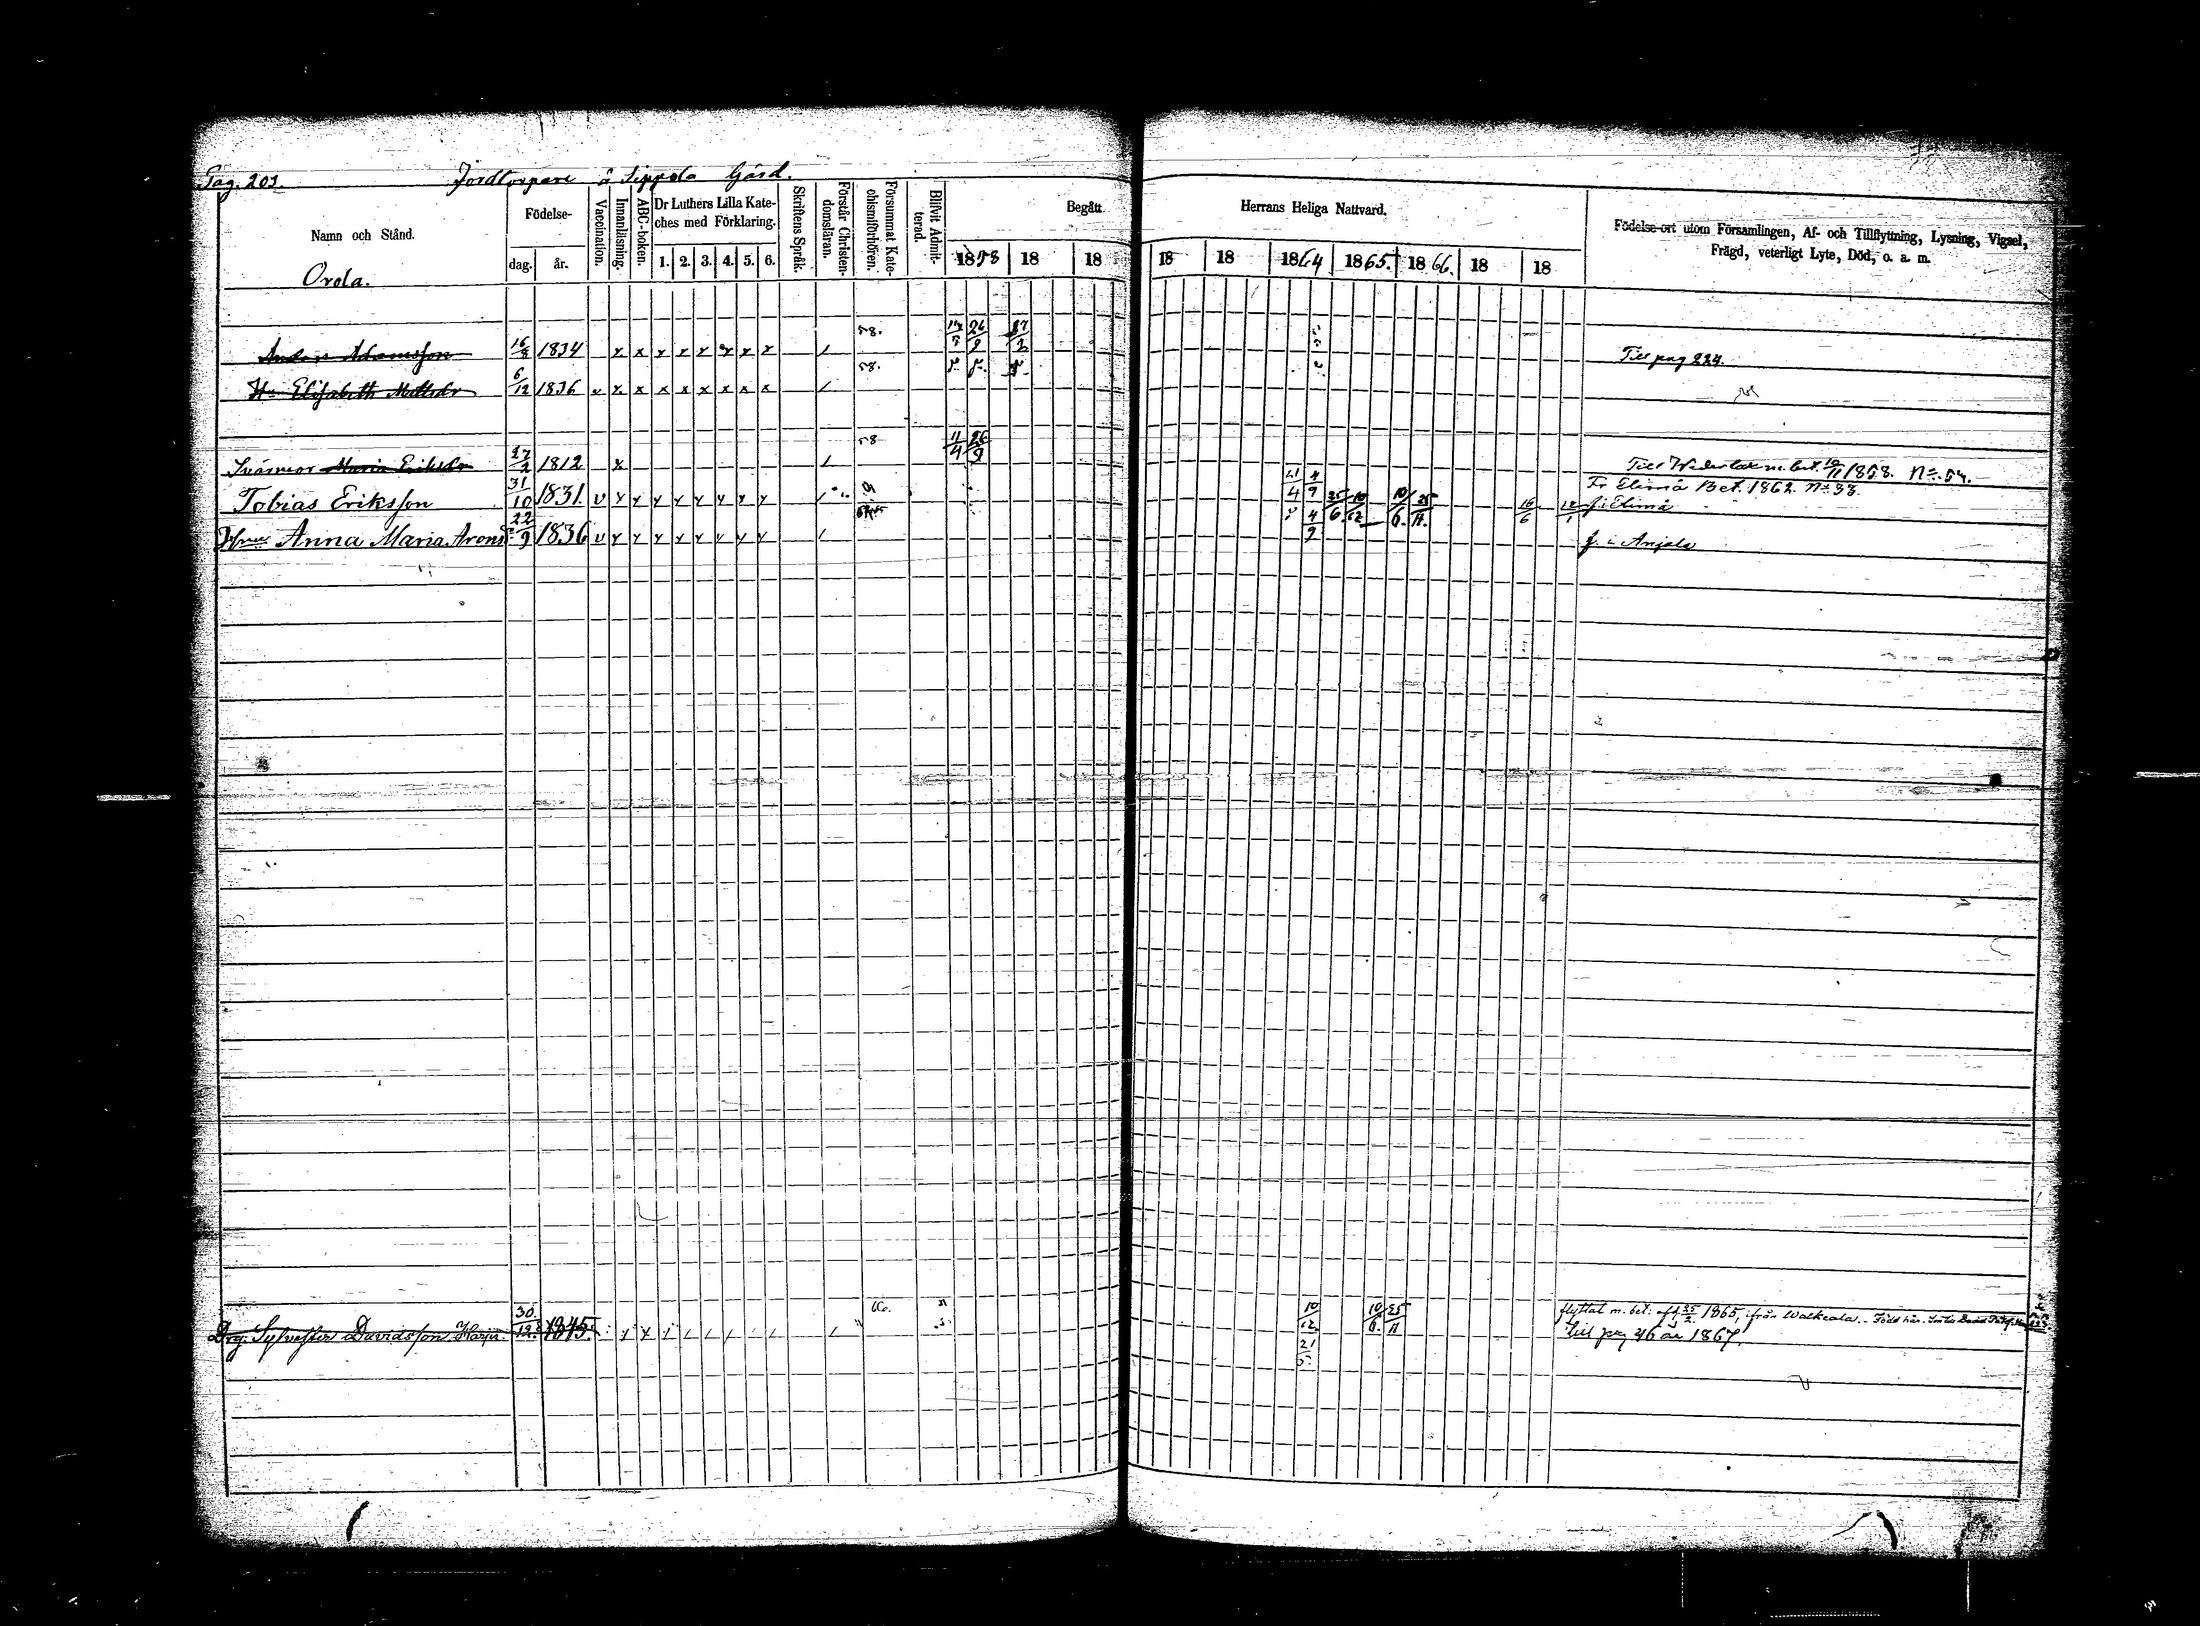 Pag. 203. Jordtorpare å Sippola Gård.
Namn och Stånd.
Födelse-
dag. år.
Vaccination.
Innanläsning.
ABC-boken.
Dr Luthers Lilla Kate-
ches med Förklaring.
1. 2. 3. 4. 5. 6.
Skriftens Språk.
Förstår Christen-
domsläran.
Försummat Kate-
chismiförhören.
Blifvit Admit-
terad.
Begått Herrans Heliga Nattvard.
1858 18 18 18 18 1864 1865. 1866. 18 18
Födelse-ort utom Församlingen, Af- och Tillflyttning, Lysning, Vigsel,
Frägd, veterligt Lyte, Död, o. a. m.
Orola.
Anders Adamsson 16/8 1834 x x x x x x x x / 58. Till pag 224.
Hu Elisabeth Mattsdr 6/12 1836 v x x x x x x x x / 58.
Svärmor Maria Eriksdr 27/2 1812 x / 58 11/4 26/9 Till Wederlax m. bet. 1858. No. 54.
Tobias Eriksson 31/10 1831. v x x x x x x x x / 4/9 25/6 10/12 10/6. 25/11. 16/6 Fr Elimä Bet. 1862. No 38.
f. i Elimä
Hustru Anna Maria Aronsdr 22/9 1836 v x x x x x x x x / 4/9 f. i Anjala
Drg. Sylvester Davidsson 30/12. 1845. x x / / / / / / / 10/12 21/5 10/6. 25/11 flyttat m. bet. af 1865, från Walkeala. - Född här.
till pag 46 år 1867.